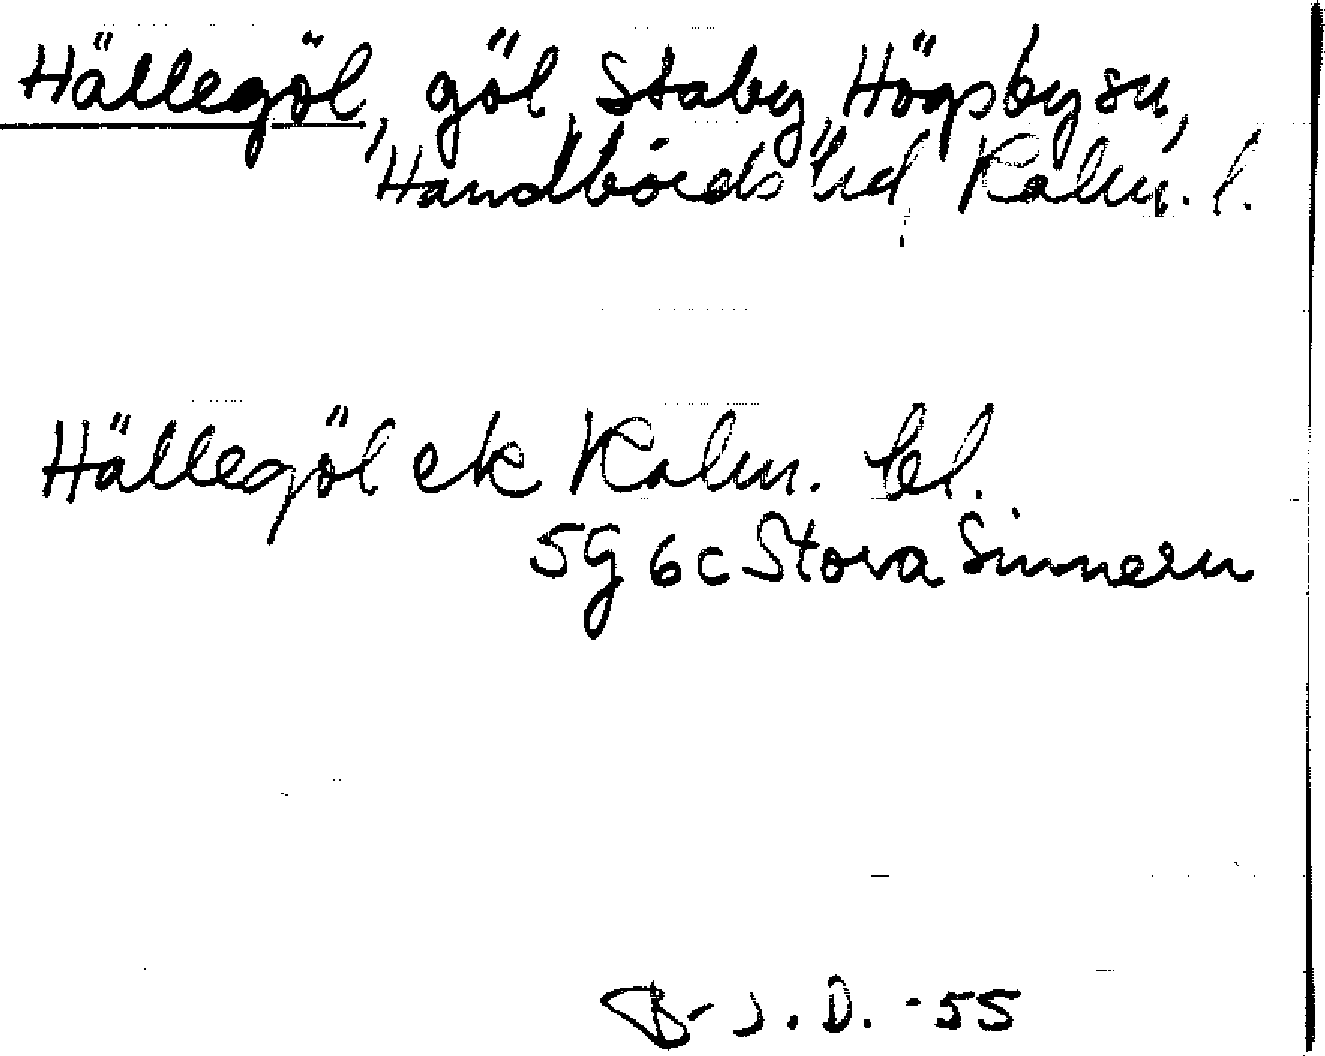 Hällegöl, göl, Staby, Högsby sn,
Handbörds hd, Kalm. l.
Hällegöl ek Kalm. bl.
5G 6c Stora Sinnern
B-J.D. -55